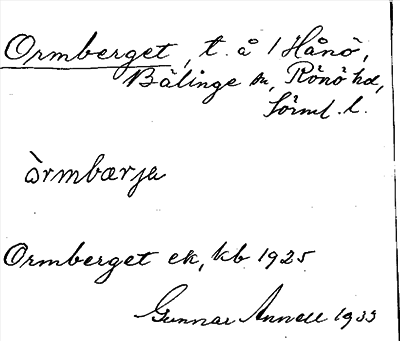 Ormberget, t. å 1 Hånö,
Bälinge sn, Rönö hd,
Sörml. l.
òrmbærja
Ormberget ek, kb 1925
Gunnar Annell 1933